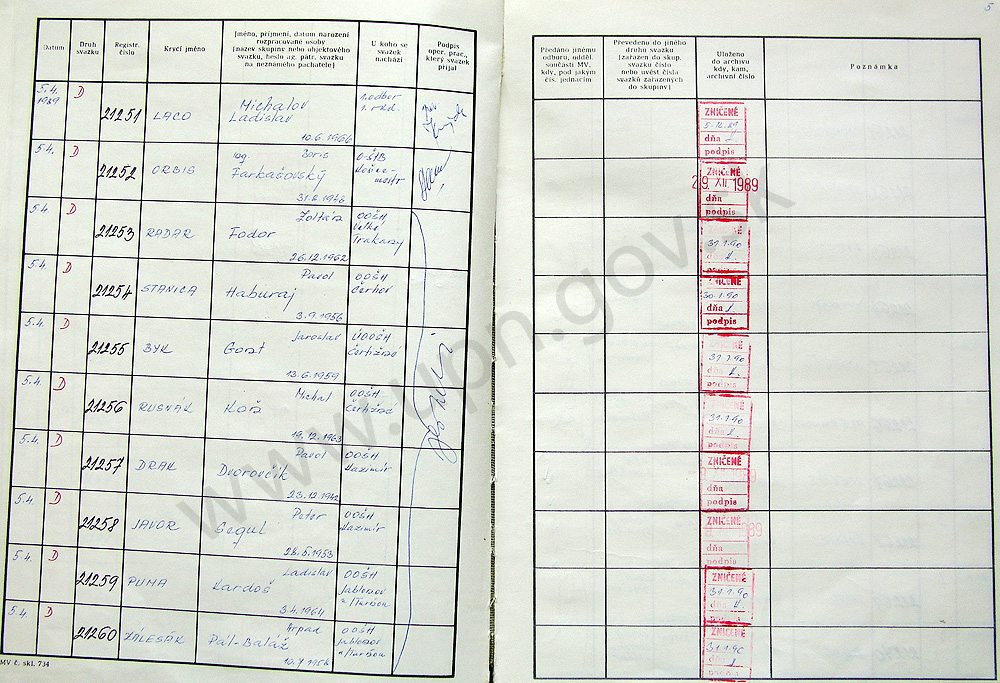 5
Datum
Druh svazku
Registr. číslo
Krycí jméno
Jméno, příjmení, datum narození
rozpracované osoby
[název skupiny nebo objektového
svazku, heslo ag. pátr. svazku
na neznámého pachatele]
U koho se
svazek
nachází
Podpis
oper. prac.,
který svazek
přijal
Předáno jinému
odboru, odděl.
součásti MV,
kdy, pod jakým
čís. jednacím
Převedeno do jiného
druhu svazku
[zařazen do skup.
svazku číslo
nebo uvést čísla
svazků zařazených
do skupiny]
Uloženo
do archivu
kdy, kam,
archivní číslo
Poznámka
5.4. 1989 D 21251 LACO Michalov Ladislav 10.6.1966 1. odbor
ZNIČENÉ
dňa
podpis
5.4. D 21252 ORBIS ing. Boris Farbašovský 31.8.1946
ZNIČENÉ
29. XII. 1989
dňa
podpis
5.4. D 21253 RADAR Zoltán Fodor 26.12.1962 OOŠH Veľké Trakany
31.1.90
podpis
5.4. D 21254 STANICA Pavol Haburaj 3.9.1956 OOŠH Čerhov
ZNIČENÉ
30.1.90
dňa
podpis
5.4. D 21255 BYK Jaroslav Gont 13.6.1959 ÚOOŠH Čertižné
31.1.90
dňa
podpis
5.4. D 21256 RUSNÁK Michal Koša 19.12.1963 OOŠH Čertižné
31.1.90
dňa
podpis
5.4. D 21257 DRAK Pavol Dvorovčik 23.12.1942 OOŠH Kazimír
ZNIČENÉ
dňa
podpis
5.4. D 21258 JAVOR Peter Segul 28.5.1953 OOŠH Kazimír
ZNIČENÉ
1989
dňa
podpis
5.4. D 21259 PUMA Ladislav Kardoš 3.4.1964 OOŠH Jablonov n/Turňou
ZNIČENÉ
31.1.90
dňa
podpis
5.4. D 21260 ZÁLESÁK Arpád Pál-Baláž OOŠH Jablonov n/Turňou
ZNIČENÉ
31.1.90
dňa
podpis
MV č. skl. 734
www.upn.gov.sk